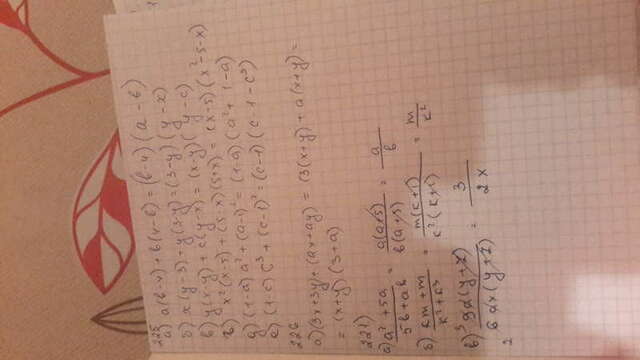 225
а) a(b-4)+b(4-b)=(b-4)(a-b)
б) x(y-3)+y(3-y)=(3-y)(y-x)
в) y(x-y)+c(y-x)=(x-y)(y-c)
г) x²(x-5)+(5-x)(5+x)=(x-5)(x²-5-x)
д) (1-a)a²+(a-1)²=(1-a)(a²+1-a)
е) (1-c)c³+(c-1)²=(c-1)(c-1-c³)
226
а) (3x+3y)+(ax+ay)=(3(x+y)+a(x+y)=
=(x+y)(3+a)
227)
а) a²+5a / 5b+ab = a(a+5) / b(a+5) = a / b
б) cm+m / c²+c³ = m(c+1) / c²(c+1) = m / c²
в) 9a(y+z) / 6ax(y+z) = 3 / 2x